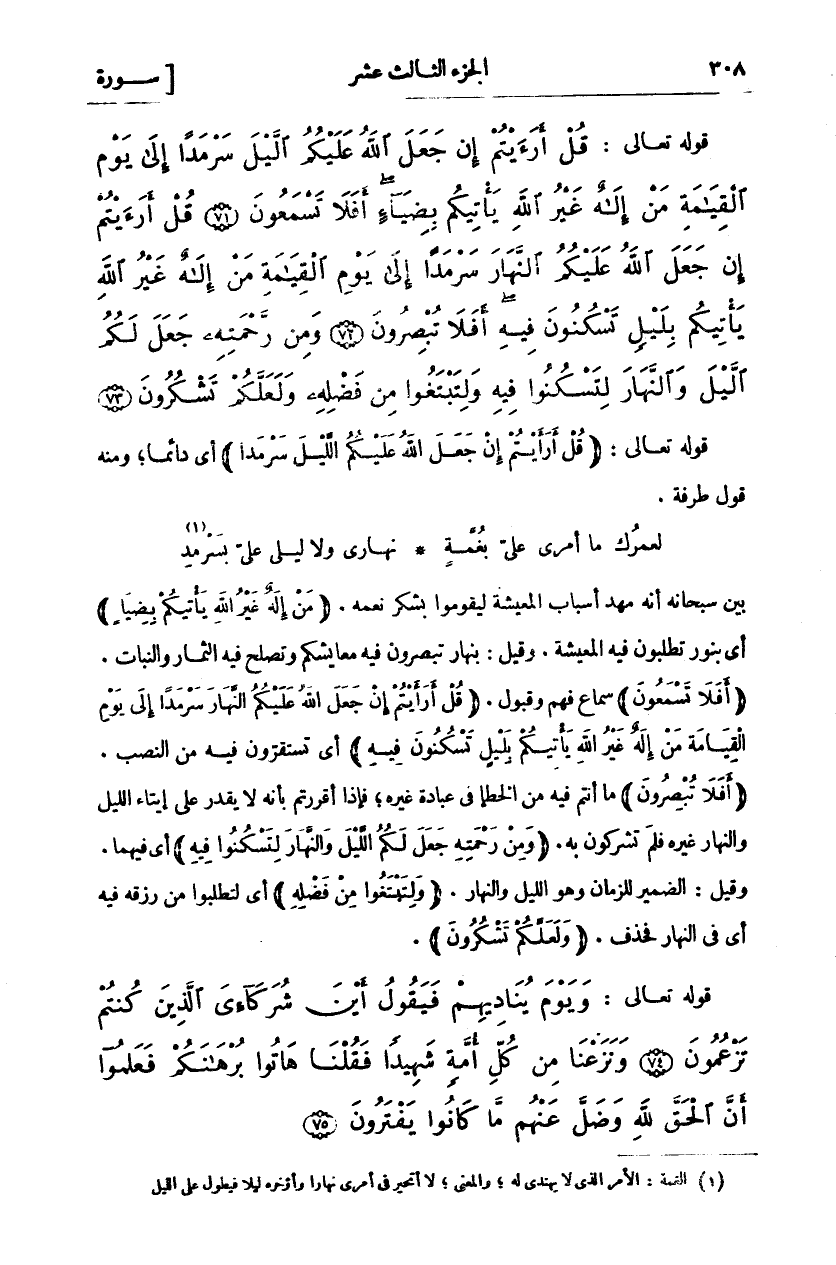 ٣٠٨ الجزء الثالث عشر [ ســورة
قوله تعالى : قُلْ أَرَءَيْتُمْ إِن جَعَلَ ٱللَّهُ عَلَيْكُمُ ٱلَّيْلَ سَرْمَدًا إِلَىٰ يَوْمِ
ٱلْقِيَـٰمَةِ مَنْ إِلَـٰهٌ غَيْرُ ٱللَّهِ يَأْتِيكُم بِضِيَآءٍ ۖ أَفَلَا تَسْمَعُونَ ﴿٧١﴾ قُلْ أَرَءَيْتُمْ
إِن جَعَلَ ٱللَّهُ عَلَيْكُمُ ٱلنَّهَارَ سَرْمَدًا إِلَىٰ يَوْمِ ٱلْقِيَـٰمَةِ مَنْ إِلَـٰهٌ غَيْرُ ٱللَّهِ
يَأْتِيكُم بِلَيْلٍ تَسْكُنُونَ فِيهِ ۖ أَفَلَا تُبْصِرُونَ ﴿٧٢﴾ وَمِن رَّحْمَتِهِۦ جَعَلَ لَكُمُ
ٱلَّيْلَ وَٱلنَّهَارَ لِتَسْكُنُوا فِيهِ وَلِتَبْتَغُوا مِن فَضْلِهِۦ وَلَعَلَّكُمْ تَشْكُرُونَ ﴿٧٣﴾
قوله تعالى : ﴿ قُلْ أَرَأَيْتُمْ إِنْ جَعَلَ اللَّهُ عَلَيْكُمُ اللَّيْلَ سَرْمَدًا ﴾ أى دائما؛ ومنه
قول طرفة .
لعمرُك ما أمرى علىّ بغُمَّةٍ * نهارى ولا ليلى علىّ بسَرْمَدِ (١)
بين سبحانه أنه مهد أسباب المعيشة ليقوموا بشكر نعمه . ﴿ مَنْ إِلَهٌ غَيْرُ اللَّهِ يَأْتِيكُمْ بِضِيَاءٍ ﴾
أى بنور تطلبون فيه المعيشة . وقيل : بنهار تبصرون فيه معايشكم وتصلح فيه الثمار والنبات .
﴿ أَفَلَا تَسْمَعُونَ ﴾ سماع فهم وقبول . ﴿ قُلْ أَرَأَيْتُمْ إِنْ جَعَلَ اللَّهُ عَلَيْكُمُ النَّهَارَ سَرْمَدًا إِلَى يَوْمِ
الْقِيَامَةِ مَنْ إِلَهٌ غَيْرُ اللَّهِ يَأْتِيكُمْ بِلَيْلٍ تَسْكُنُونَ فِيهِ ﴾ أى تستقرّون فيه من النصب .
﴿ أَفَلَا تُبْصِرُونَ ﴾ ما أنتم فيه من الخطإ فى عبادة غيره ؛ فإذا أقررتم بأنه لا يقدر على إيتاء الليل
والنهار غيره فلم تشركون به . ﴿ وَمِنْ رَحْمَتِهِ جَعَلَ لَكُمُ اللَّيْلَ وَالنَّهَارَ لِتَسْكُنُوا فِيهِ ﴾ أى فيهما .
وقيل : الضمير للزمان وهو الليل والنهار . ﴿ وَلِتَبْتَغُوا مِنْ فَضْلِهِ ﴾ أى لتطلبوا من رزقه فيه
أى فى النهار فحذف . ﴿ وَلَعَلَّكُمْ تَشْكُرُونَ ﴾ .
قوله تعالى : وَيَوْمَ يُنَادِيهِمْ فَيَقُولُ أَيْنَ شُرَكَآءِىَ ٱلَّذِينَ كُنتُمْ
تَزْعُمُونَ ﴿٧٤﴾ وَنَزَعْنَا مِن كُلِّ أُمَّةٍ شَهِيدًا فَقُلْنَا هَاتُوا بُرْهَـٰنَكُمْ فَعَلِمُوٓا
أَنَّ ٱلْحَقَّ لِلَّهِ وَضَلَّ عَنْهُم مَّا كَانُوا يَفْتَرُونَ ﴿٧٥﴾
(١) الغمة : الأمر الذى لا يهتدى له ؛ والمعنى ؛ لا أتحير فى أمرى نهارا وأؤخره ليلا فيطول على الليل